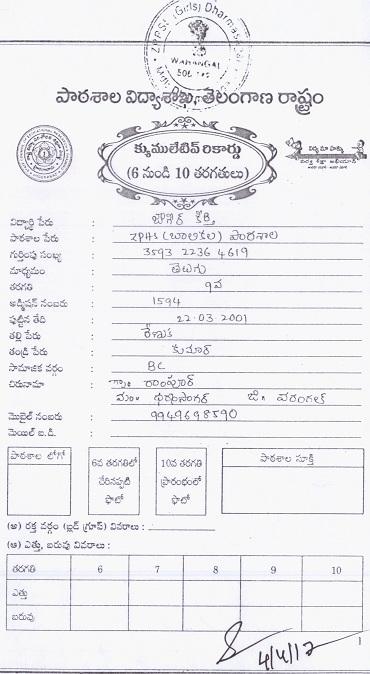 ZPHS (Girls) Dharmasagar
WARANGAL
పాఠశాల విద్యాశాఖ, తెలంగాణ రాష్ట్రం
క్యుములేటివ్ రికార్డు
(6 నుండి 10 తరగతులు)
విద్యార్థి పేరు :
పాఠశాల పేరు : ZPHS (బాలికల) పాఠశాల
గుర్తింపు సంఖ్య : 3593 2236 4619
మాధ్యమం : తెలుగు
తరగతి : 9వ
అడ్మిషన్ నంబరు : 1594
పుట్టిన తేది : 22-03-2001
తల్లి పేరు : రేణుక
తండ్రి పేరు : కుమార్
సామాజిక వర్గం : BC
చిరునామా : గ్రా. రాంపూర్
మం. ధర్మసాగర్ జి. వరంగల్
మొబైల్ నంబరు : 9949698590
మెయిల్ ఐ.డి. :
పాఠశాల లోగో
6వ తరగతిలో చేరినప్పటి ఫొటో
10వ తరగతి ప్రారంభంలో ఫొటో
పాఠశాల సూక్తి
(అ) రక్త వర్గం (బ్లడ్ గ్రూప్) వివరాలు :
(ఆ) ఎత్తు, బరువు వివరాలు :
తరగతి 6 7 8 9 10
ఎత్తు
బరువు
1
4/4/17